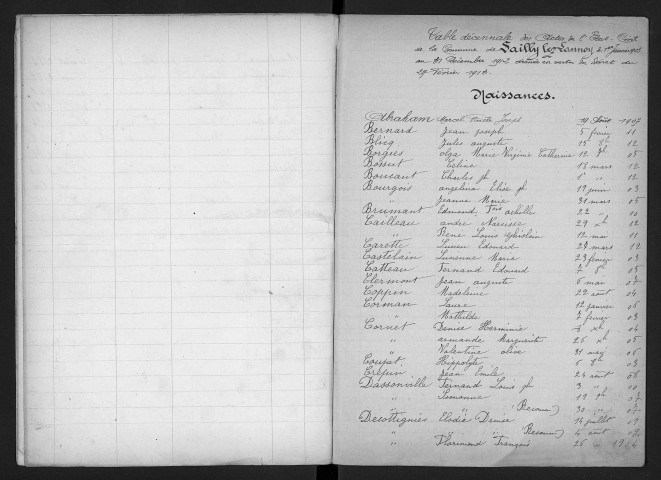 Table décennale des Actes de l'Etat-Civil
de la Commune de Sailly lez Lannoy du 1er Janvier 1903
au 31 Décembre 1912 dressée en vertu du Décret du
Février
Naissances.
Abraham Marcel Joseph 19 Août 1907
Bernard Jean Joseph 5 février 11
Blicq Jules auguste 15 12
Borgies olga Marie Virginie Catherine 12 05
Bossut Celina 18 mars 12
Bousant Charles 1er " 12
Bourgois angelina Elise 19 juin 03
" Jeanne Marie 31 mars 05
Brumant Edmond, Fois achille 22 " 10
Cailleau andré Narcisse 29 12
" René Louis Ghislain 12 mai 11
Carette Lucien Edouard 24 mars 12
Castelain Laurence Marie 23 février 03
Catteau Fernand Edouard 7 05
Clermont Jean auguste 6 mai 07
Coppin Madeleine 29 août 04
Corman Laure 12 janvier 06
" Mathilde 7 février 03
Cornet Denise Herminie 04
" armande Marguerite 26 05
" Valentine olive 31 mai 06
Coupat Hippolyte 6 03
Crépin Jean Emile 24 août 06
Dassonville Fernand Louis 3 " 10
" 19 07
" " (Reconn) 30 " 07
Descottignies Elodie Denise 14 juillet 09
" " " (Reconn) août
" Florimond François 26